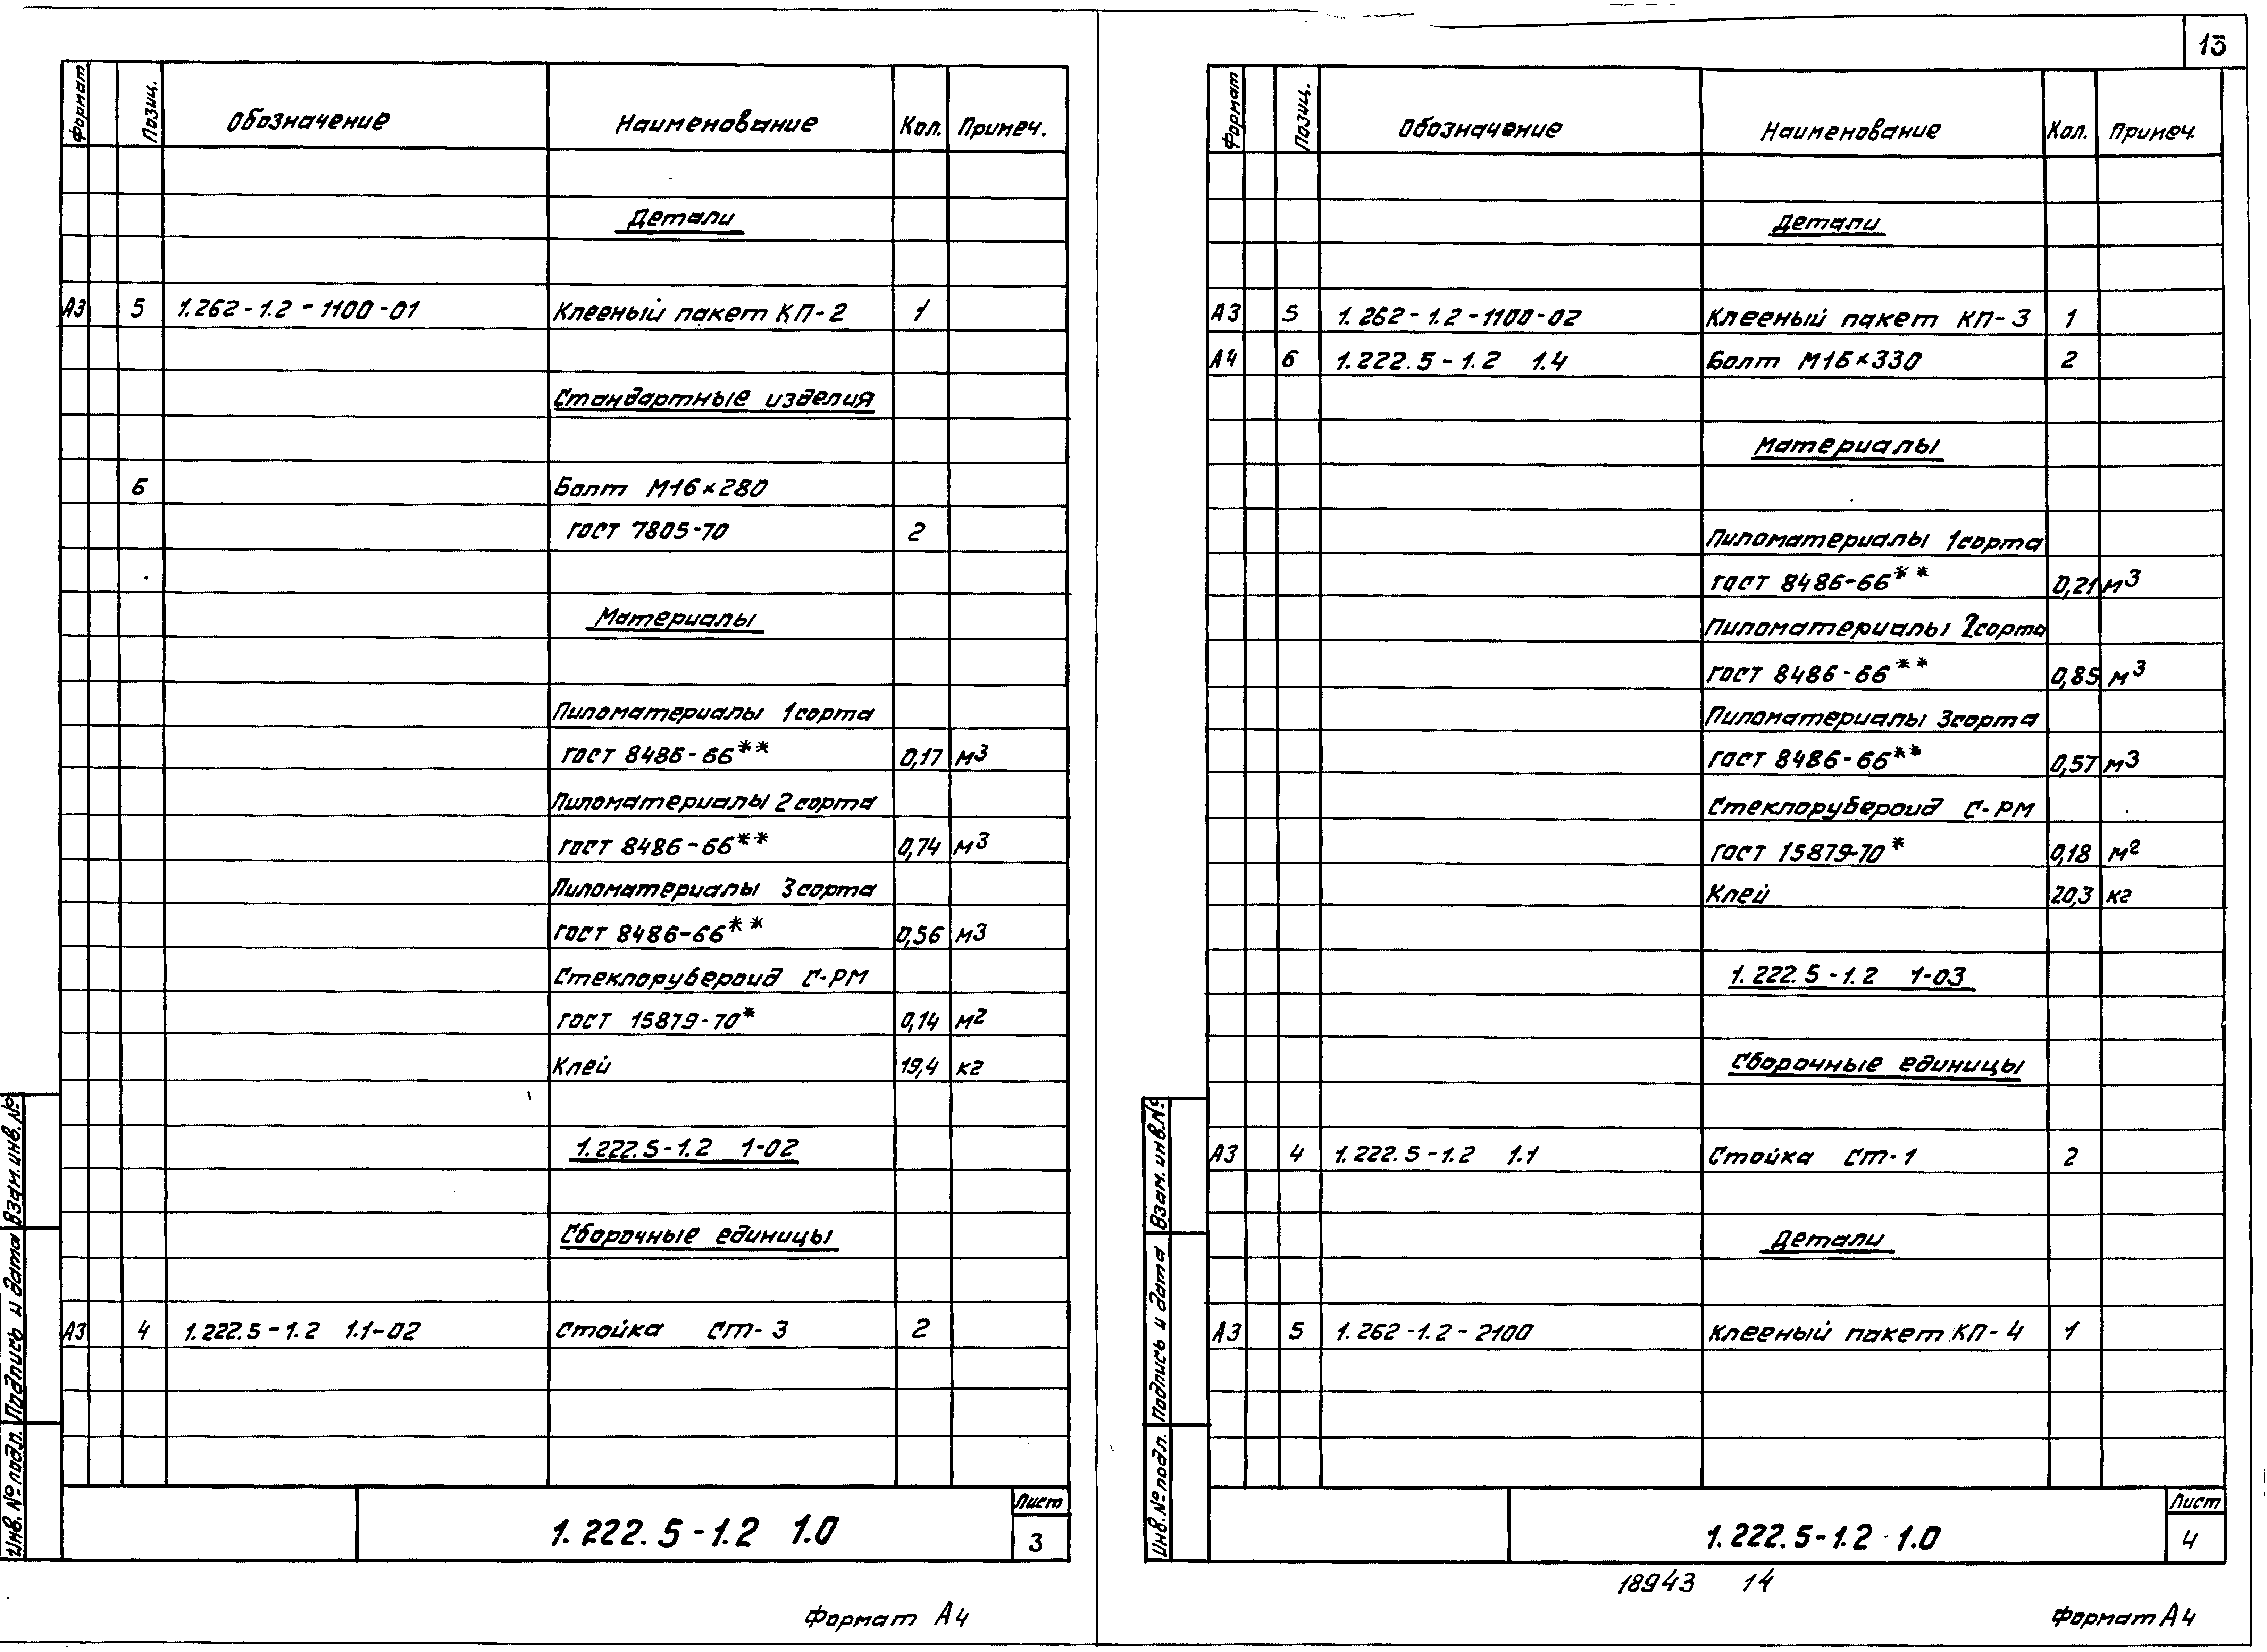 Формат Позиц. Обозначение Наименование Кол. Примеч.
Детали
А3 5 1.262-1.2-1100-01 Клееный пакет КП-2 1
Стандартные изделия
6 Болт М16×280
ГОСТ 7805-70 2
Материалы
Пиломатериалы 1 сорта
ГОСТ 8486-66** 0,17 м3
Пиломатериалы 2 сорта
ГОСТ 8486-66** 0,74 м3
Пиломатериалы 3 сорта
ГОСТ 8486-66** 0,56 м3
Стеклорубероид С-РМ
ГОСТ 15879-70* 0,14 м2
Клей 19,4 кг
1.222.5-1.2 1-02
Сборочные единицы
А3 4 1.222.5-1.2 1.1-02 Стойка СТ-3 2
Инв. № подл. Подпись и дата Взам. инв. №
1.222.5-1.2 1.0
Лист
3
Формат А4
13
Формат Позиц. Обозначение Наименование Кол. Примеч.
Детали
А3 5 1.262-1.2-1100-02 Клееный пакет КП-3 1
А4 6 1.222.5-1.2 1.4 Болт М16×330 2
Материалы
Пиломатериалы 1 сорта
ГОСТ 8486-66** 0,21 м3
Пиломатериалы 2 сорта
ГОСТ 8486-66** 0,85 м3
Пиломатериалы 3 сорта
ГОСТ 8486-66** 0,57 м3
Стеклорубероид С-РМ
ГОСТ 15879-70* 0,18 м2
Клей 20,3 кг
1.222.5-1.2 1-03
Сборочные единицы
А3 4 1.222.5-1.2 1.1 Стойка СТ-1 2
Детали
А3 5 1.262-1.2-2100 Клееный пакет КП-4 1
Инв. № подл. Подпись и дата Взам. инв. №
1.222.5-1.2 1.0
Лист
4
18943 14
Формат А4